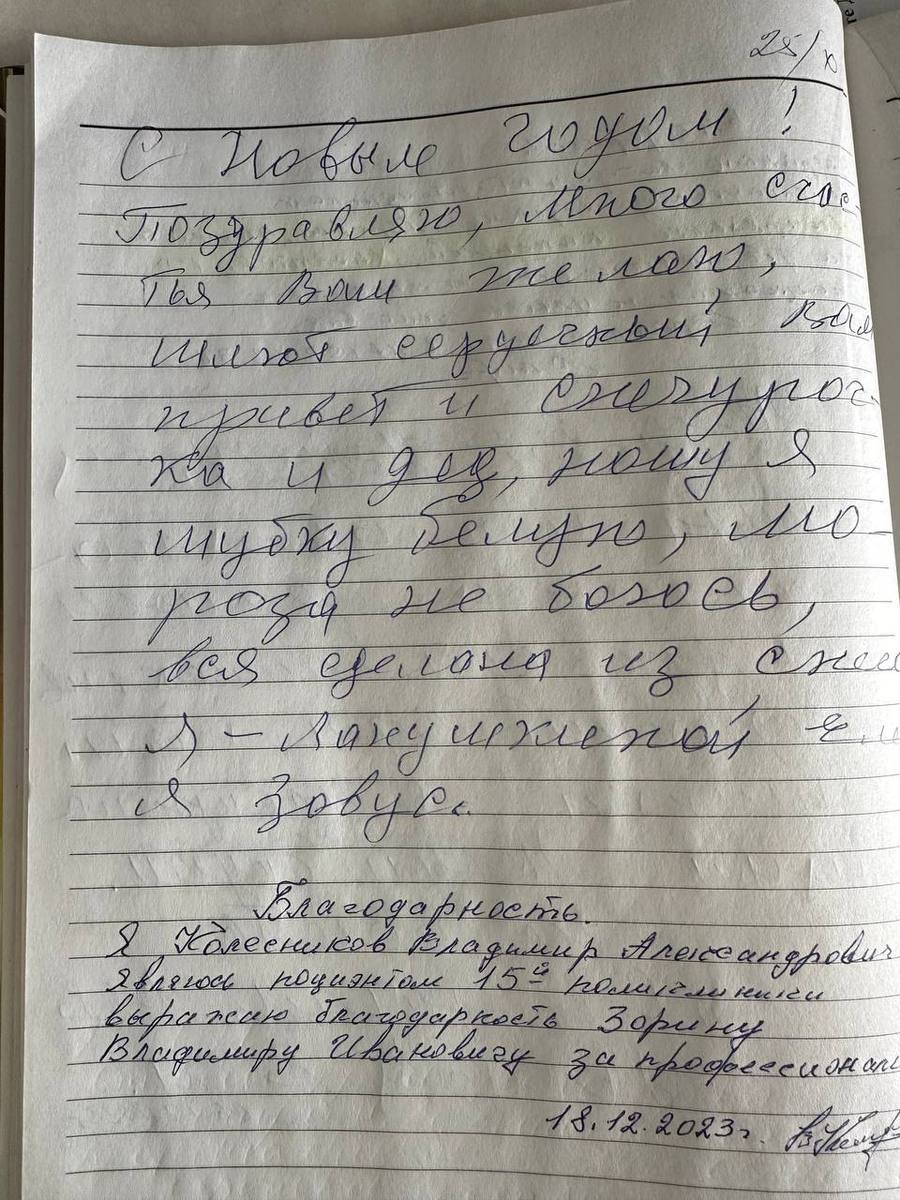 25/x
С Новым годом!
Поздравляю, много счас-
тья Вам желаю,
шлют сердечный Вам
привет и Снегуроч-
ка и дед, ношу я
шубку белую, мо-
роза не боюсь,
вся сделана из снеж
я – Лапушкиной
я зовусь.
Благодарность.
Я Колесников Владимир Александрович
являюсь пациентом 15й поликлиники
выражаю благодарность Зорину
Владимиру Ивановичу за профессионал
18.12.2023г.